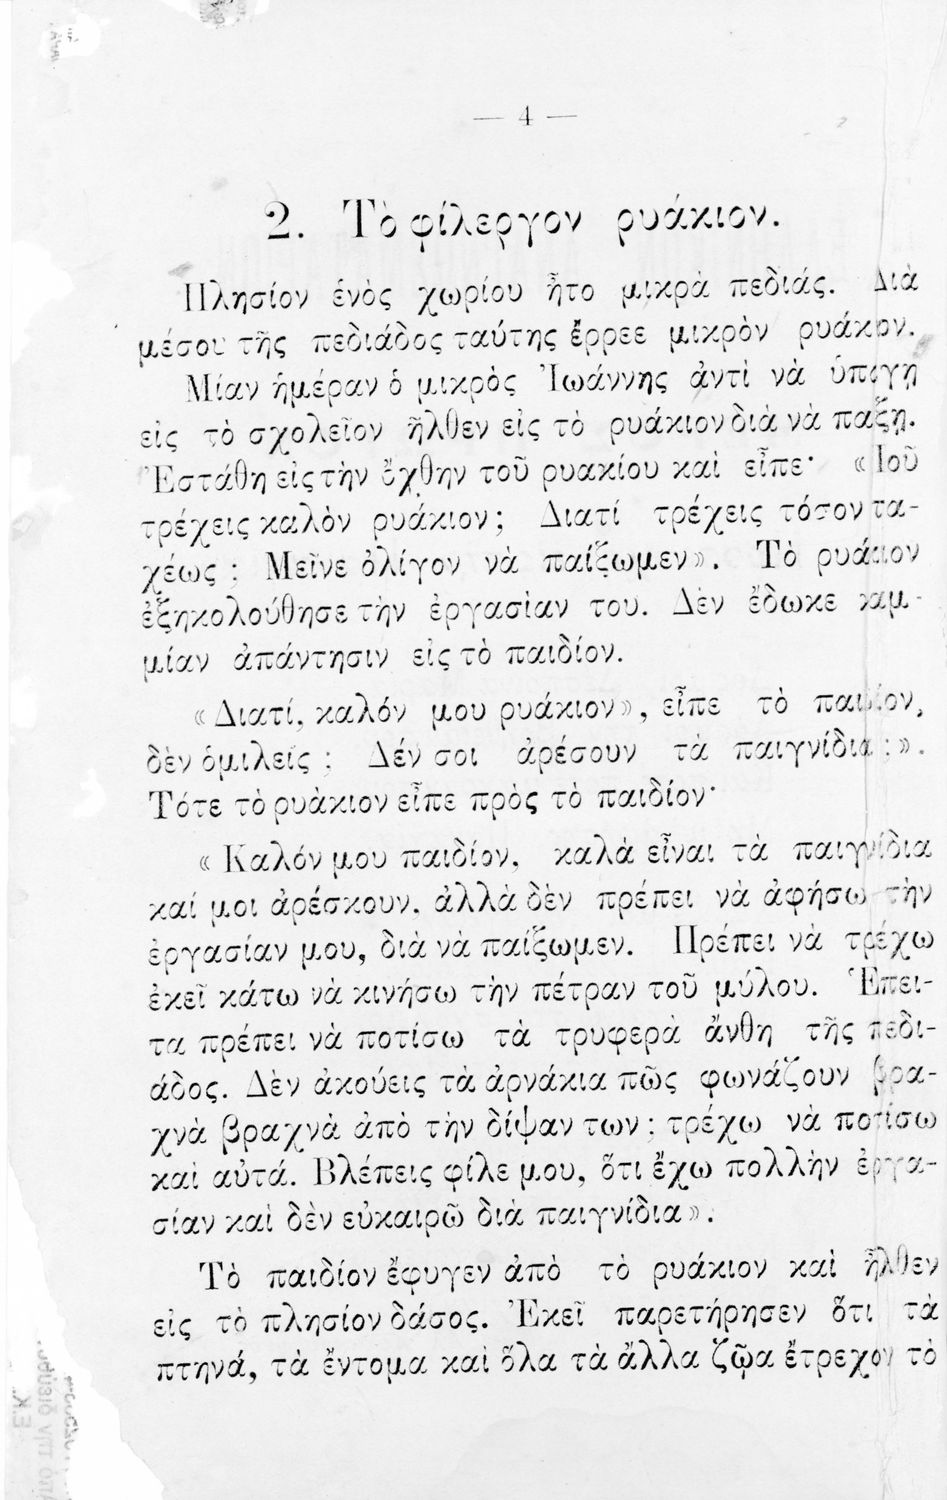 — 4 —
2. Τὸ φίλεργον ρυάκιον.
Πλησίον ἑνὸς χωρίου ἦτο μικρὰ πεδιάς. Διὰ
μέσου τῆς πεδιάδος ταύτης ἔρρεε μικρὸν ρυάκιον.
Μίαν ἡμέραν ὁ μικρὸς Ἰωάννης ἀντὶ νὰ ὑπάγῃ
εἰς τὸ σχολεῖον ἦλθεν εἰς τὸ ρυάκιον διὰ νὰ παίξῃ.
Ἐστάθη εἰς τὴν ὄχθην τοῦ ρυακίου καὶ εἶπε· «Ποῦ
τρέχεις καλὸν ρυάκιον; Διατί τρέχεις τόσον τα-
χέως ; Μεῖνε ὀλίγον νὰ παίξωμεν». Τὸ ρυάκιον
ἐξηκολούθησε τὴν ἐργασίαν του. Δὲν ἔδωκε καμ-
μίαν ἀπάντησιν εἰς τὸ παιδίον.
«Διατί, καλόν μου ρυάκιον», εἶπε τὸ παιδίον,
δὲν ὁμιλεῖς ; Δέν σοι ἀρέσουν τὰ παιγνίδια ;».
Τότε τὸ ρυὰκιον εἶπε πρὸς τὸ παιδίον·
« Καλόν μου παιδίον, καλὰ εἶναι τὰ παιγνίδια
καί μοι ἀρέσκουν, ἀλλὰ δὲν πρέπει νὰ ἀφήσω τὴν
ἐργασίαν μου, διὰ νὰ παίξωμεν. Πρέπει νὰ τρέχω
ἐκεῖ κάτω νὰ κινήσω τὴν πέτραν τοῦ μύλου. Ἔπει-
τα πρέπει νὰ ποτίσω τὰ τρυφερὰ ἄνθη τῆς πεδι-
άδος. Δὲν ἀκούεις τὰ ἀρνάκια πῶς φωνάζουν βρα-
χνὰ βραχνὰ ἀπὸ τὴν δίψαν των ; τρέχω νὰ ποτίσω
καὶ αὐτά. Βλέπεις φίλε μου, ὅτι ἔχω πολλὴν ἐργα-
σίαν καὶ δὲν εὐκαιρῶ διὰ παιγνίδια».
Τὸ παιδίον ἔφυγεν ἀπὸ τὸ ρυάκιον καὶ ἦλθεν
εἰς τὸ πλησίον δάσος. Ἐκεῖ παρετήρησεν ὅτι τὰ
πτηνά, τὰ ἔντομα καὶ ὅλα τὰ ἄλλα ζῷα ἔτρεχον τὸ